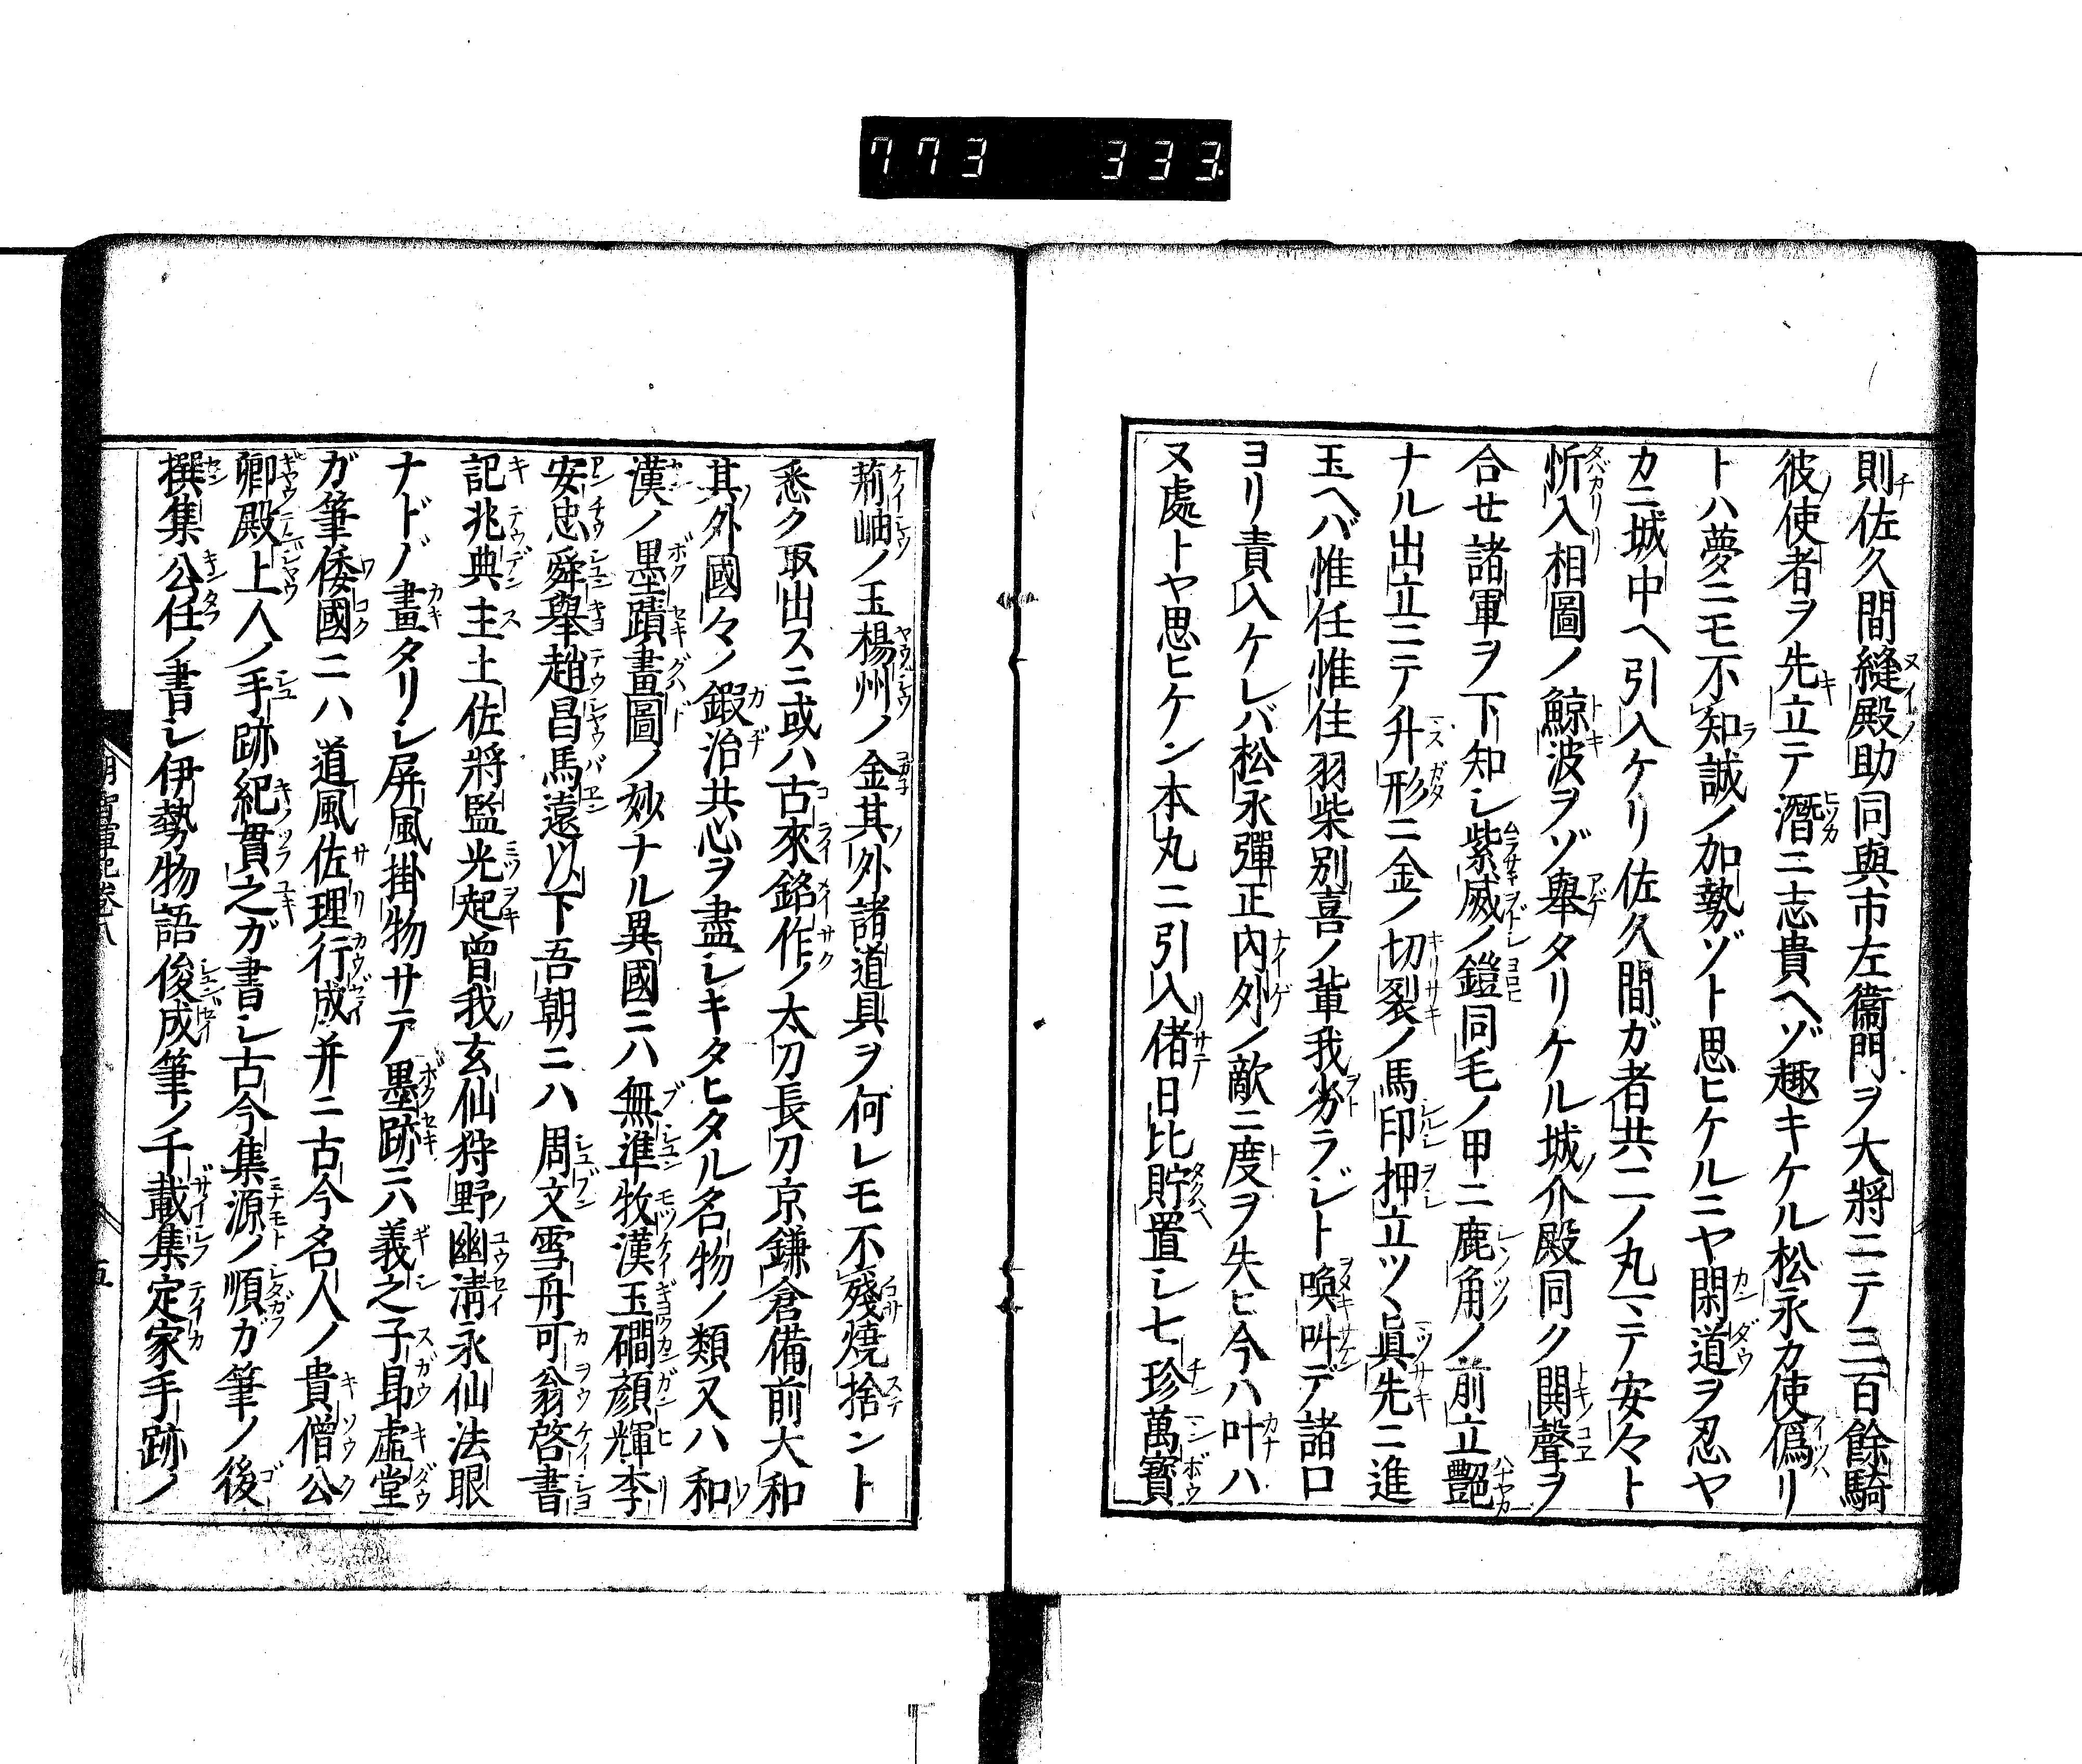 773 333.
則佐久間縫殿助同與市左衞門ヲ大將ニテ三百餘騎
彼使者ヲ先立テ潛ニ志貴ヘゾ趣キケル松永カ使僞リ
トハ夢ニモ不知誠ノ加勢ゾト思ヒケルニヤ閑道ヲ忍ヤ
カニ城中ヘ引入ケリ佐久間ガ者共二ノ丸ニテ安々ト
忻入相圖ノ鯨波ヲゾ擧タリケル城介殿同ク鬨聲ヲ
合せ諸軍ヲ下知シ紫威ノ鎧同毛ノ甲ニ鹿角ノ前立艷
ナル出立ニテ升形ニ金ノ切裂ノ馬印押立ツヽ眞先ニ進
玉ヘバ惟任惟住羽柴別喜ノ輩我劣ラジト喚叫デ諸口
ヨリ責入ケレバ松永彈正內外ノ敵ニ度ヲ失ヒ今ハ叶ハ
ヌ處トヤ思ヒケン本丸ニ引入偖日比貯置シ七珍萬寶
荊岫ノ玉楊州ノ金其外諸道具ヲ何レモ不殘燒捨ント
悉ク取出スニ或ハ古來銘作ノ太刀長刀京鎌倉備前大和
其外國々ノ鍜冶共心ヲ盡シキタヒタル名物ノ類又ハ和
漢ノ墨蹟畫圖ノ妙ナル異國ニハ無準牧漢玉磵顏輝李
安忠舜擧趙昌馬遠以下吾朝ニハ周文雪舟可翁啓書
記兆典主土佐將監光起曾我玄仙狩野幽淸永仙法眼
ナドノ畫タリシ屏風掛物サテ墨跡ニハ義之子昻虛堂
ガ筆倭國ニハ道風佐理行成并ニ古今名人ノ貴僧公
卿殿上人ノ手跡紀貫之ガ書シ古今集源ノ順ガ筆ノ後
撰集公任ノ書シ伊勢物語俊成筆ノ千載集定家手跡ノ